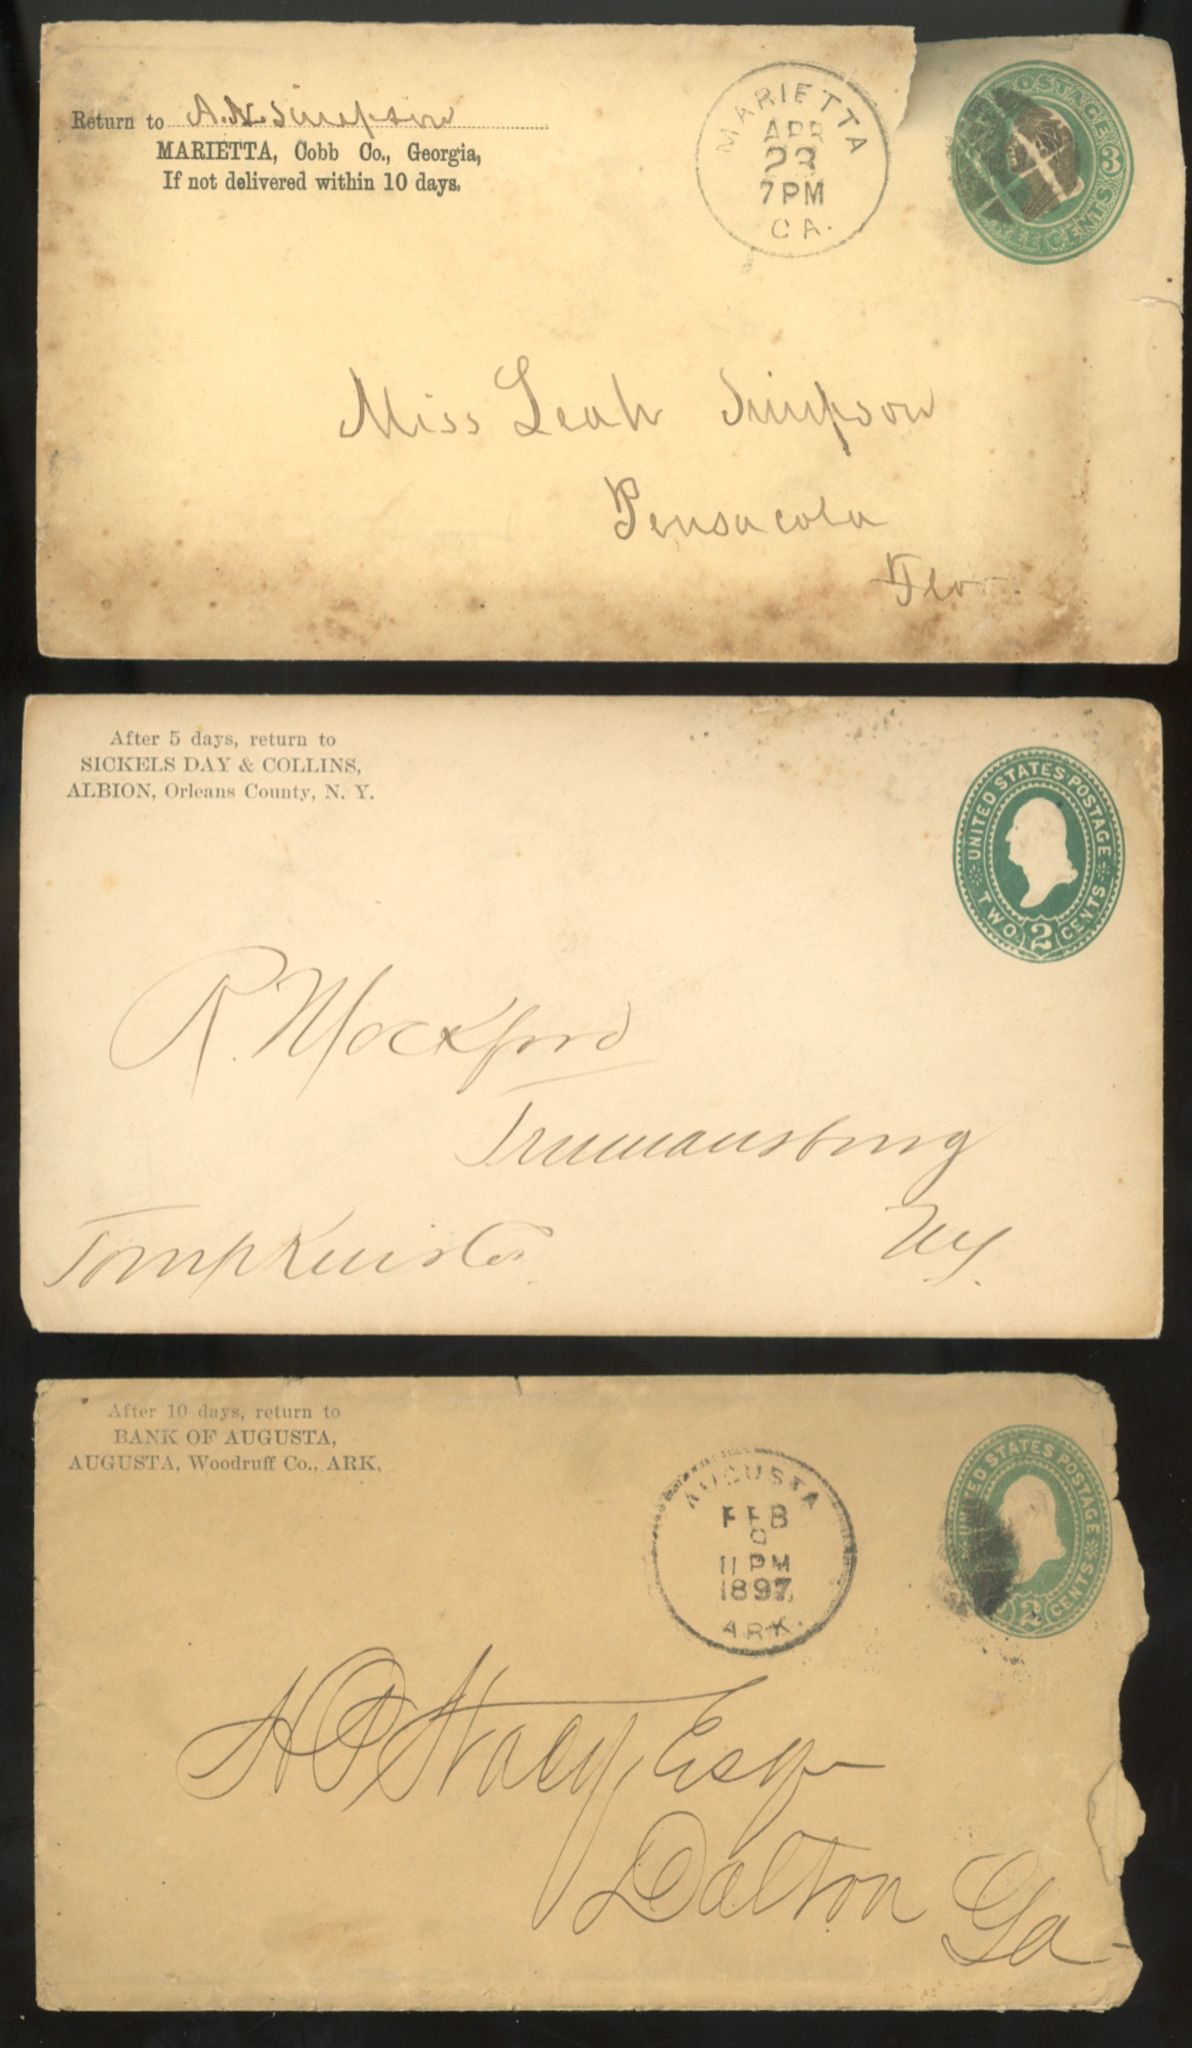 Return to A. N. Simpson
MARIETTA, Cobb Co., Georgia,
If not delivered within 10 days.
MARIETTA
APR
23
7 PM
GA.
POSTAGE
3
CENTS
Miss Leah Simpson
Pensacola
Flor
After 5 days, return to
SICKELS DAY & COLLINS,
ALBION, Orleans County, N. Y.
UNITED STATES POSTAGE
TWO 2 CENTS
R. Mockford
Trumansburg
NY.
Tompkins Co.
After 10 days, return to
BANK OF AUGUSTA,
AUGUSTA, Woodruff Co., ARK.
AUGUSTA
FEB
11 PM
1897
ARK.
UNITED STATES POSTAGE
2 CENTS
Esq
Dalton Ga